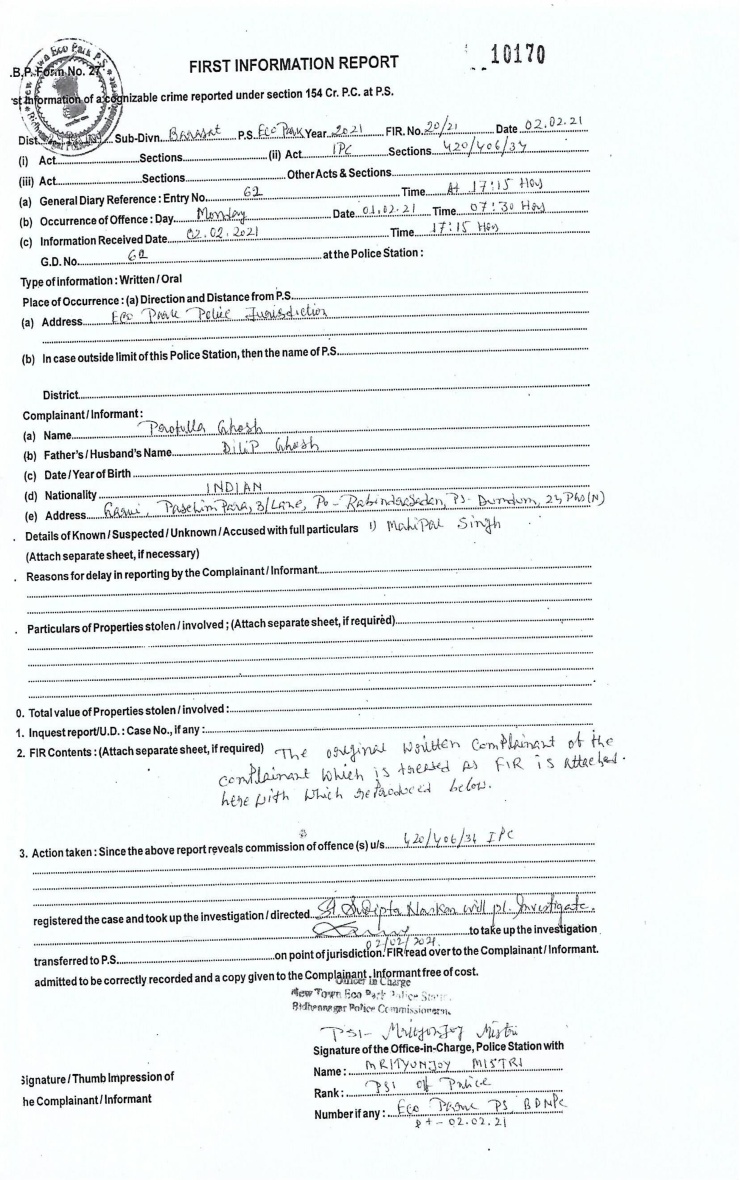 10170
FIRST INFORMATION REPORT
.B.P. Form No. 27
st Information of a cognizable crime reported under section 154 Cr. P.C. at P.S.
Dist. Sub-Divn. Barasat P.S. Eco Park Year 2021 FIR. No. 20/21 Date 02.02.21
(i) Act Sections (ii) Act IPC Sections 420/406/34
(iii) Act Sections Other Acts & Sections
(a) General Diary Reference : Entry No. 62 Time At 17:15 Hrs
(b) Occurrence of Offence : Day Monday Date 01.02.21 Time 07:30 Hrs
(c) Information Received Date 02.02.2021 Time 17:15 Hrs
G.D. No. 62 at the Police Station :
Type of information : Written / Oral
Place of Occurrence : (a) Direction and Distance from P.S.
(a) Address Eco Park Police Jurisdiction
(b) In case outside limit of this Police Station, then the name of P.S.
District
Complainant / Informant :
(a) Name Profulla Ghosh
(b) Father's / Husband's Name Dilip Ghosh
(c) Date / Year of Birth
(d) Nationality INDIAN
(e) Address Paschim Para, 3/Lane, Po - Rabindra, PS- Dumdum, 24 Pgs (N)
. Details of Known / Suspected / Unknown / Accused with full particulars 1) Mahipal Singh
(Attach separate sheet, if necessary)
. Reasons for delay in reporting by the Complainant / Informant
. Particulars of Properties stolen / involved ; (Attach separate sheet, if required)
0. Total value of Properties stolen / involved :
1. Inquest report / U.D. : Case No., if any :
2. FIR Contents : (Attach separate sheet, if required) The original written complainant of the
complainant which is treated as FIR is attached.
here with which reproduced below.
3. Action taken : Since the above report reveals commission of offence (s) u/s 420/406/34 IPC
registered the case and took up the investigation / directed SI Sudipta Naskar will pl. Investigate.
to take up the investigation
02/02/2021
transferred to P.S. on point of jurisdiction. FIR read over to the Complainant / Informant.
admitted to be correctly recorded and a copy given to the Complainant. Informant free of cost.
Officer in Charge
New Town Eco Park Police Station
Bidhannagar Police Commissionerate
PSI- Mrityunjoy Mistri
Signature of the Office-in-Charge, Police Station with
Name : MRITYUNJOY MISTRI
Signature / Thumb Impression of
he Complainant / Informant
Rank : PSI of Police
Number if any : Eco Park PS, BDNPC
Dt - 02.02.21